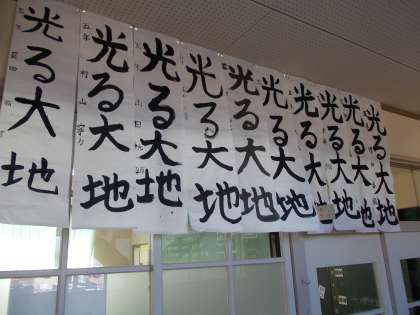 光る大地
光る大地
五年 村山
光る大地
光る大地
光る大地
光る大地
光る大地
光る大地
光る大地
光る大地